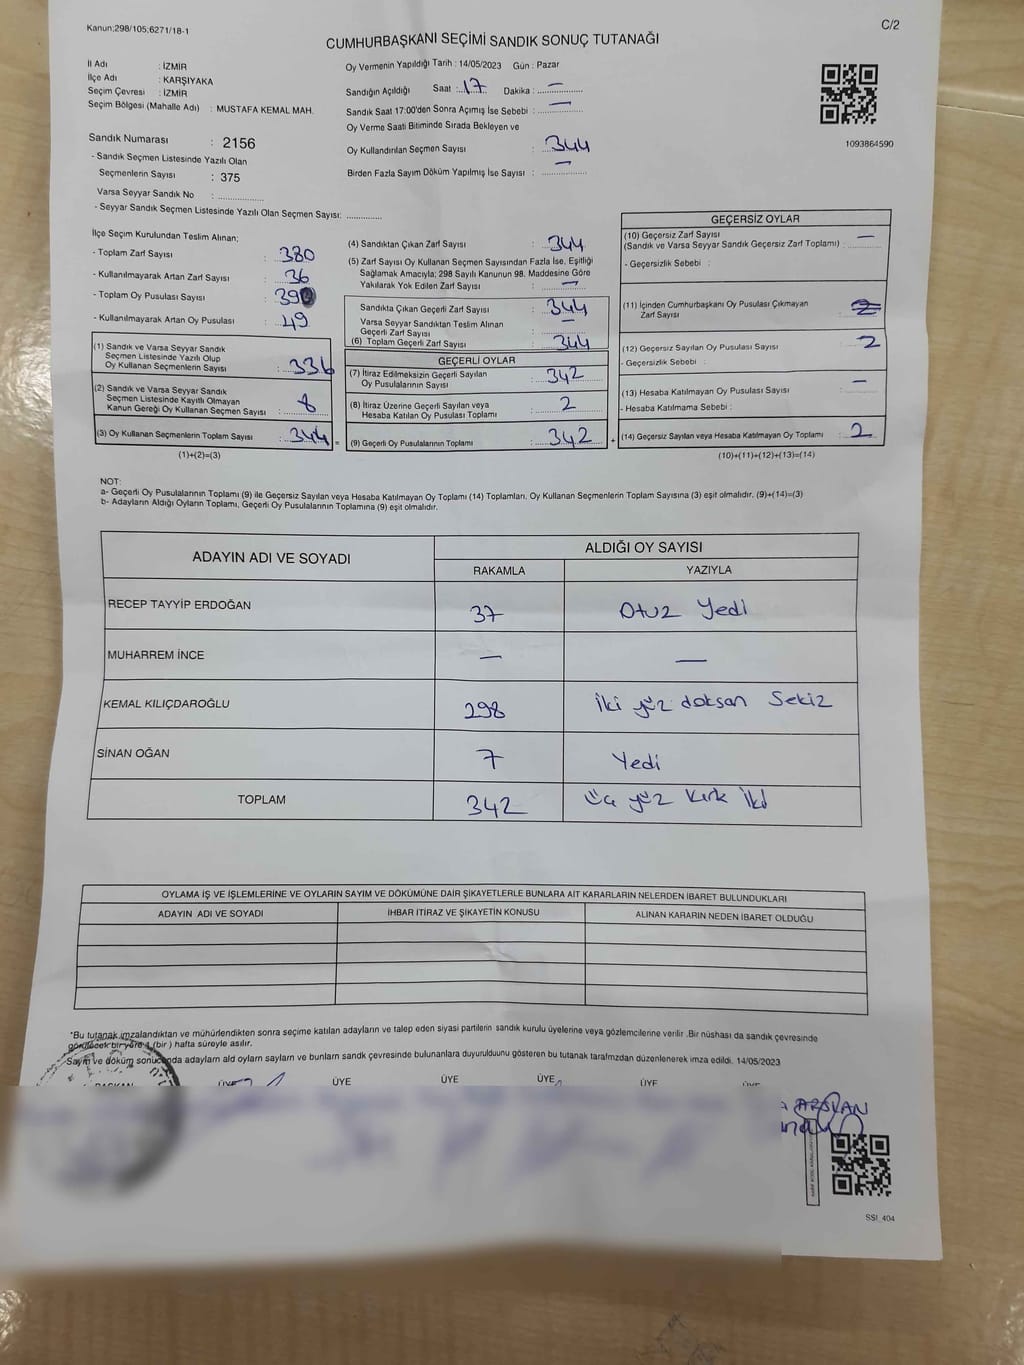 Kanun;298/105;6271/18-1
C/2
CUMHURBAŞKANI SEÇİMİ SANDIK SONUÇ TUTANAĞI
İl Adı : İZMİR
İlçe Adı : KARŞIYAKA
Seçim Çevresi : İZMİR
Seçim Bölgesi (Mahalle Adı) : MUSTAFA KEMAL MAH.
Sandık Numarası : 2156
- Sandık Seçmen Listesinde Yazılı Olan
Seçmenlerin Sayısı : 375
Varsa Seyyar Sandık No : ..................
- Seyyar Sandık Seçmen Listesinde Yazılı Olan Seçmen Sayısı: ..............
Oy Vermenin Yapıldığı Tarih : 14/05/2023 Gün : Pazar
Sandığın Açıldığı Saat : 17 Dakika : —
Sandık Saat 17:00'den Sonra Açımış İse Sebebi : —
Oy Verme Saati Bitiminde Sırada Bekleyen ve
Oy Kullandırılan Seçmen Sayısı : 344
Birden Fazla Sayım Döküm Yapılmış İse Sayısı : —
1093864590
İlçe Seçim Kurulundan Teslim Alınan;
- Toplam Zarf Sayısı : 380
- Kullanılmayarak Artan Zarf Sayısı : 36
- Toplam Oy Pusulası Sayısı : 390
- Kullanılmayarak Artan Oy Pusulası : 49
(1) Sandık ve Varsa Seyyar Sandık
Seçmen Listesinde Yazılı Olup
Oy Kullanan Seçmenlerin Sayısı : 336
(2) Sandık ve Varsa Seyyar Sandık
Seçmen Listesinde Kayıtlı Olmayan
Kanun Gereği Oy Kullanan Seçmen Sayısı : 8
(3) Oy Kullanan Seçmenlerin Toplam Sayısı : 344 =
(1)+(2)=(3)
(4) Sandıktan Çıkan Zarf Sayısı : 344
(5) Zarf Sayısı Oy Kullanan Seçmen Sayısından Fazla İse, Eşitliği
Sağlamak Amacıyla; 298 Sayılı Kanunun 98. Maddesine Göre
Yakılarak Yok Edilen Zarf Sayısı : —
Sandıkta Çıkan Geçerli Zarf Sayısı : 344
Varsa Seyyar Sandıktan Teslim Alınan
Geçerli Zarf Sayısı : —
(6) Toplam Geçerli Zarf Sayısı : 344
GEÇERLİ OYLAR
(7) İtiraz Edilmeksizin Geçerli Sayılan
Oy Pusulalarının Sayısı : 342
(8) İtiraz Üzerine Geçerli Sayılan veya
Hesaba Katılan Oy Pusulası Toplamı : 2
(9) Geçerli Oy Pusulalarının Toplamı : 342 +
GEÇERSİZ OYLAR
(10) Geçersiz Zarf Sayısı
(Sandık ve Varsa Seyyar Sandık Geçersiz Zarf Toplamı) : —
- Geçersizlik Sebebi :
(11) İçinden Cumhurbaşkanı Oy Pusulası Çıkmayan
Zarf Sayısı :
(12) Geçersiz Sayılan Oy Pusulası Sayısı : 2
- Geçersizlik Sebebi :
(13) Hesaba Katılmayan Oy Pusulası Sayısı : —
- Hesaba Katılmama Sebebi :
(14) Geçersiz Sayılan veya Hesaba Katılmayan Oy Toplamı : 2
(10)+(11)+(12)+(13)=(14)
NOT:
a- Geçerli Oy Pusulalarının Toplamı (9) ile Geçersiz Sayılan veya Hesaba Katılmayan Oy Toplamı (14) Toplamları, Oy Kullanan Seçmenlerin Toplam Sayısına (3) eşit olmalıdır. (9)+(14)=(3)
b- Adayların Aldığı Oyların Toplamı, Geçerli Oy Pusulalarının Toplamına (9) eşit olmalıdır.
ADAYIN ADI VE SOYADI
ALDIĞI OY SAYISI
RAKAMLA YAZIYLA
RECEP TAYYİP ERDOĞAN 37 Otuz Yedi
MUHARREM İNCE — —
KEMAL KILIÇDAROĞLU 298 İki yüz doksan Sekiz
SİNAN OĞAN 7 Yedi
TOPLAM 342 Üç yüz Kırk İki
OYLAMA İŞ VE İŞLEMLERİNE VE OYLARIN SAYIM VE DÖKÜMÜNE DAİR ŞİKAYETLERLE BUNLARA AİT KARARLARIN NELERDEN İBARET BULUNDUKLARI
ADAYIN ADI VE SOYADI İHBAR İTİRAZ VE ŞİKAYETİN KONUSU ALINAN KARARIN NEDEN İBARET OLDUĞU
*Bu tutanak imzalandıktan ve mühürlendikten sonra seçime katılan adayların ve talep eden siyasi partilerin sandık kurulu üyelerine veya gözlemcilerine verilir .Bir nüshası da sandık çevresinde
görülecek bir yere 1 (bir ) hafta süreyle asılır.
Sayım ve döküm sonucunda adayların ald oyların sayların ve bunların sandık çevresinde bulunanlara duyurulduunu gösteren bu tutanak tarafmzdan düzenlenerek imza edildi. 14/05/2023
BAŞKAN ÜYE ÜYE ÜYE ÜYE ÜYE
ARSLAN
SSI_404